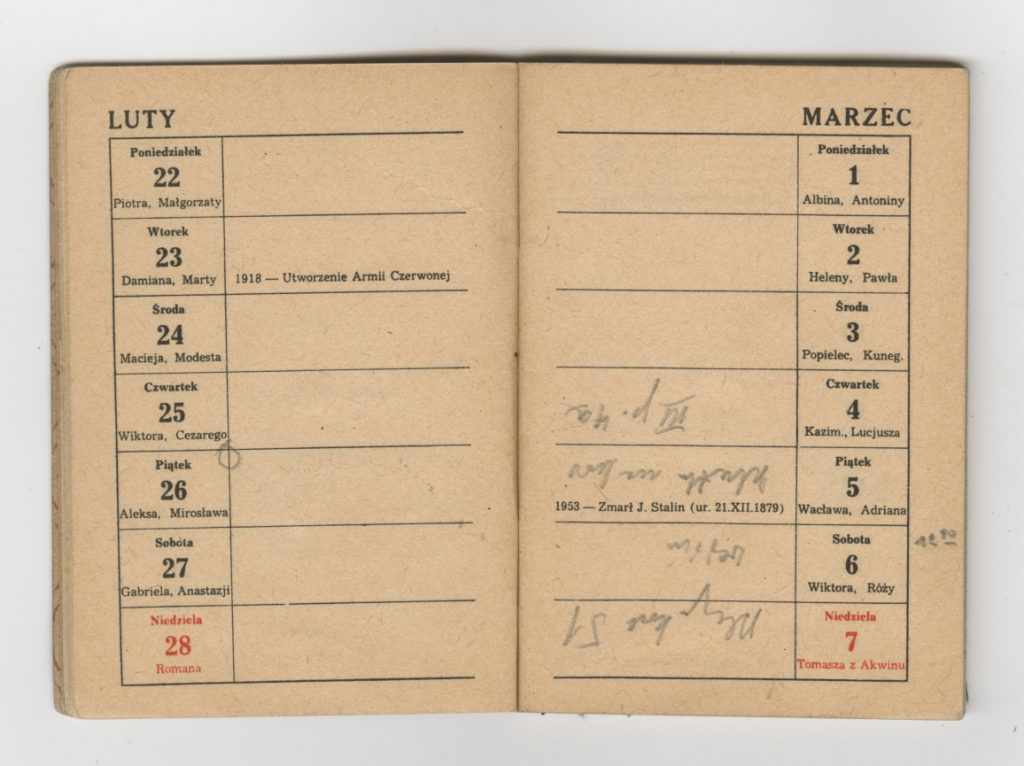 LUTY
Poniedziałek
22
Piotra, Małgorzaty
Wtorek
23
Damiana, Marty
1918 — Utworzenie Armii Czerwonej
Środa
24
Macieja, Modesta
Czwartek
25
Wiktora, Cezarego
Piątek
26
Aleksa, Mirosława
Sobota
27
Gabriela, Anastazji
Niedziela
28
Romana
MARZEC
Poniedziałek
1
Albina, Antoniny
Wtorek
2
Heleny, Pawła
Środa
3
Popielec, Kuneg.
Czwartek
4
Kazim., Lucjusza
III p. 4a
Piątek
5
Wacława, Adriana
1953 — Zmarł J. Stalin (ur. 21.XII.1879)
Sobota
6
Wiktora, Róży
Niedziela
7
Tomasza z Akwinu
51